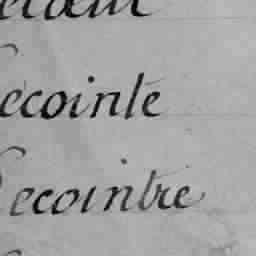 Lecointe
Lecointre